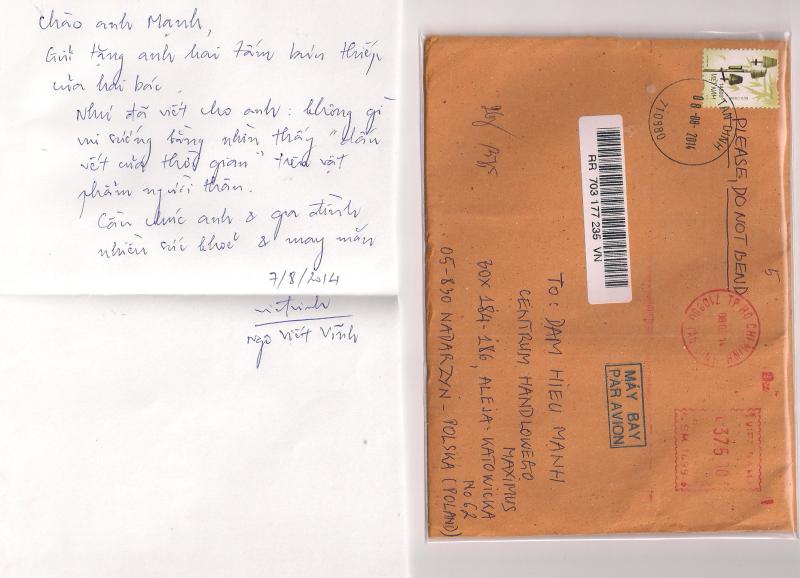 Chào anh Mạnh,
Gửi tặng anh hai tấm bưu thiếp
của hai bác.
Như đã viết cho anh: không gì
vui sướng bằng nhìn thấy "dấu
vết của thời gian" trên vật
phẩm người thân.
Cầu chúc anh & gia đình
nhiều sức khoẻ & may mắn
7/8/2014
Ngô Viết Vĩnh
VIETNAM
TÂN ĐỊNH
08-08-2014
710980
PLEASE, DO NOT BEND
5
RR 703 177 235 VN
TP HO CHI MINH
MÁY BAY
PAR AVION
375 10
To: DAM HIEU MANH
CENTRUM HANDLOWEGO
MAXIMUS
BOX 184-186, ALEJA: KATOWICKA
No 62
05-830 NADARZYN - POLSKA (POLAND)